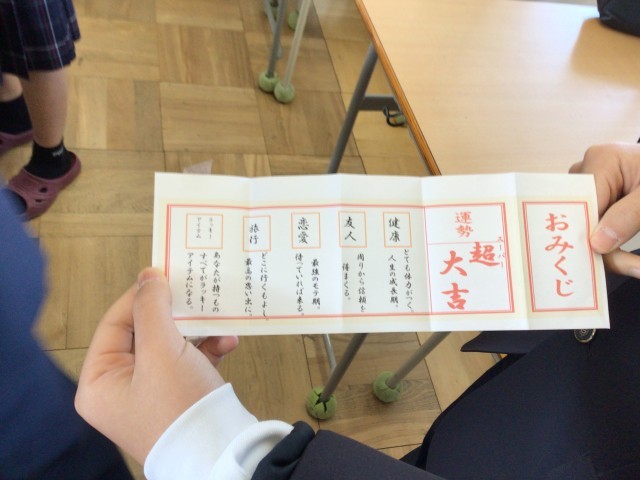 おみくじ
運勢
スーパー
超大吉
健康
とても体力がつく。
人生の成長期。
友人
周りから信頼を
得まくる。
恋愛
最強のモテ期。
待っていれば来る。
旅行
どこに行くもよし。
最高の思い出に。
ラッキー
アイテム
あなたが持つもの
すべてがラッキー
アイテムになる。